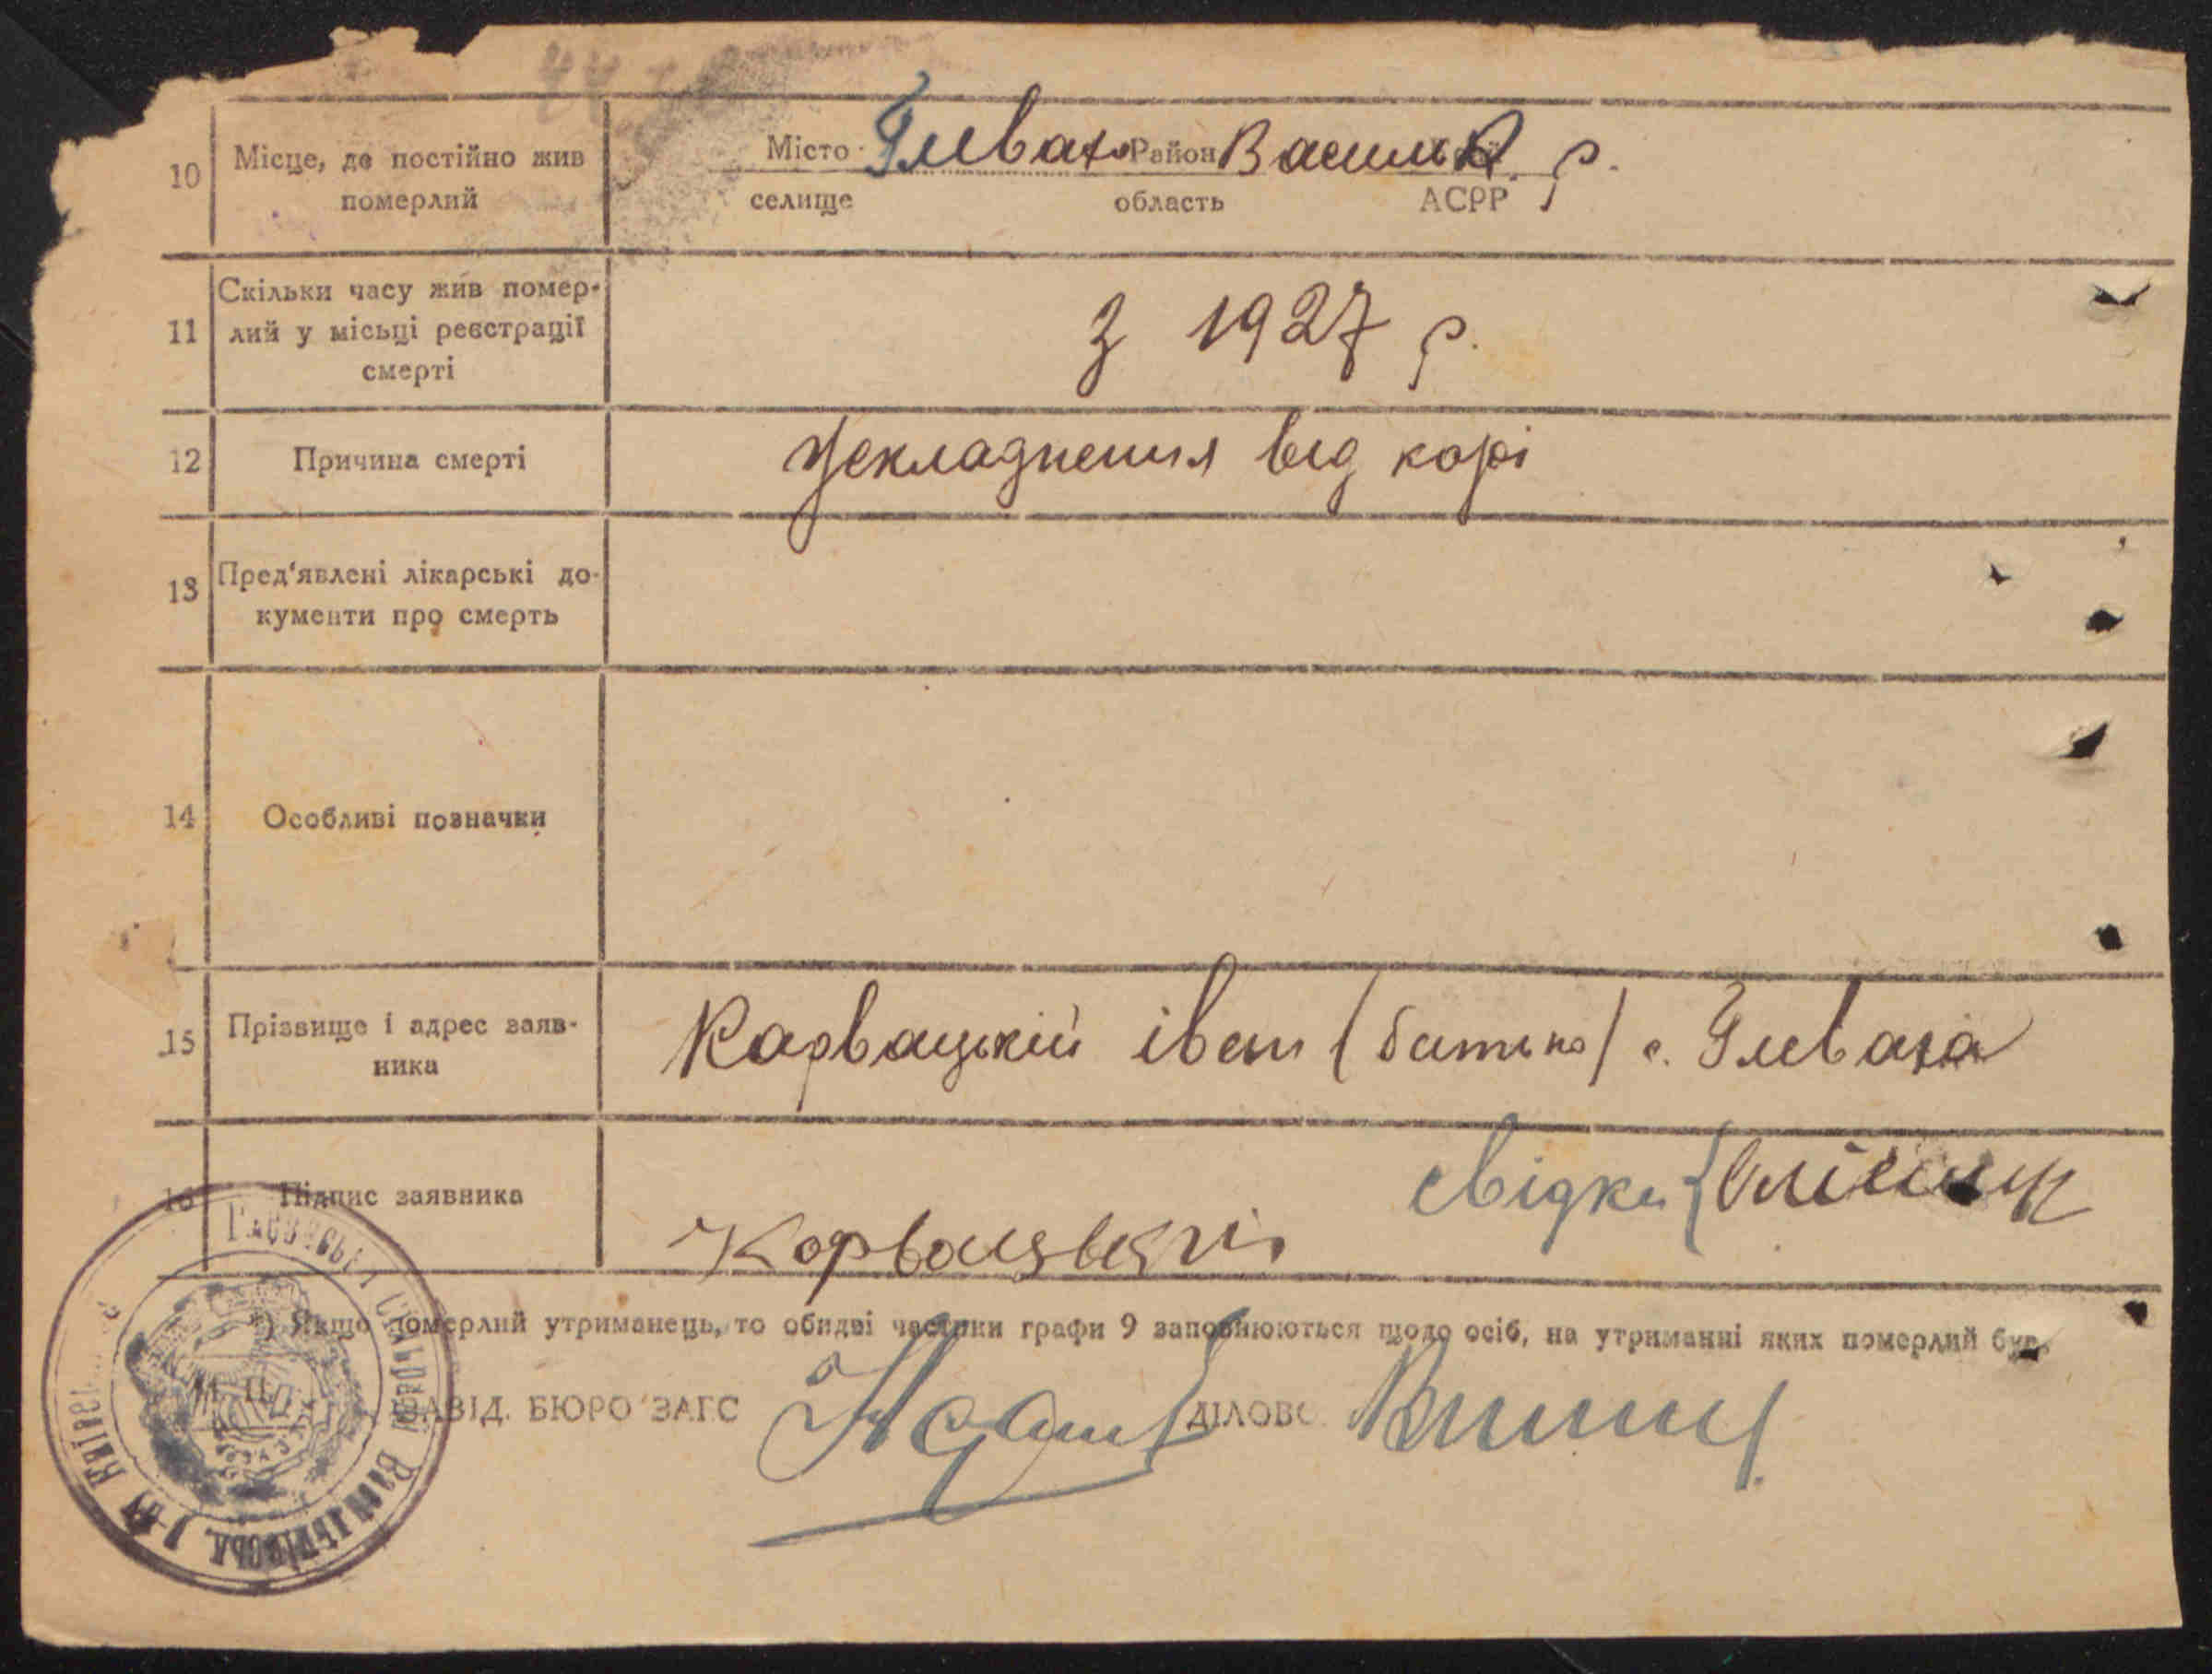 10 Місце, де постійно жив померлий
Місто Глеваха Район Васильк. р.
селище область АСРР
11 Скільки часу жив помер-
лий у місьці реєстрації
смерті
з 1927 р.
12 Причина смерті
Ускладнення від корі
13 Пред'явлені лікарські до-
кументи про смерть
14 Особливі позначки
15 Прізвище і адрес заяв-
ника
Карвацькій івен (батько) с. Глеваха
16 Підпис заявника
Корвацькій
свідки {
*) Якщо померлий утриманець, то обидві частини графи 9 заповнюються щодо осіб, на утриманні яких померлий був.
ЗАВІД. БЮРО ЗАГС
ДІЛОВС